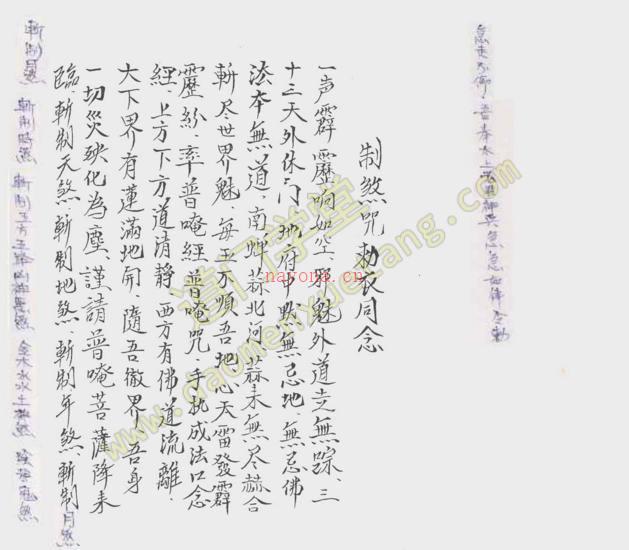 急走不停
吾奉太上老君
急急如律令勅
制煞咒勅衣同念
一声霹靂响如空邪魅外道走無踪、三
十三天外休门地府中 無忌地、無忌佛
法本無道、南 蒜北河蒜未無尽赫合
斬尽世界魅 每王不順吾地心天雷發霹
靂紛、率普唵經普唵咒、手执成法口念
經、上方下方道清静 西方有佛道流離、
大下界有蓮滿地開、隨吾徹界吾身
一切災殃化為塵、謹請普唵菩薩降来
臨、斬制天煞、斬制地煞、斬制年煞、斬制月煞
斬制月煞 斬制時煞 斬制五方五路凶神惡煞 金木水火土 煞
道门学堂
www.daomenxuetang.com
nayona.cn